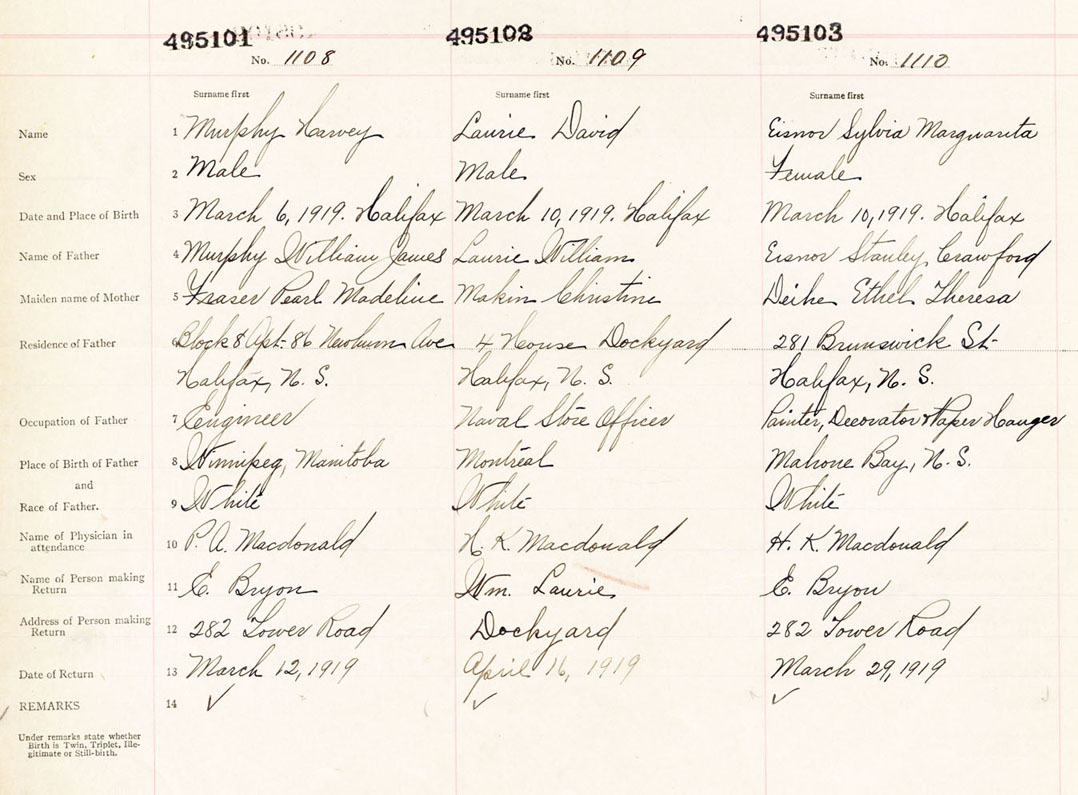 495101 495102 495103
No. 1108 No. 1109 No. 1110
Surname first Surname first Surname first
Name 1 Murphy Harvey Laurie David Eisnor Sylvia Marguarita
Sex 2 Male Male Female
Date and Place of Birth 3 March 6, 1919. Halifax March 10, 1919. Halifax March 10, 1919. Halifax
Name of Father 4 Murphy William James Laurie William Eisnor Stanley Crawford
Maiden name of Mother 5 Fraser Pearl Madeline Makin Christine Ethel Theresa
Residence of Father 6 Block 8 Apt-86 Ave 4 House Dockyard 281 Brunswick St-
Halifax, N. S. Halifax, N. S. Halifax, N. S.
Occupation of Father 7 Engineer Naval Store Officer Painter, Decorator & Paper Hanger
Place of Birth of Father 8 Winnipeg, Manitoba Montreal Mahone Bay, N. S.
and
Race of Father. 9 White White White
Name of Physician in
attendance 10 P. A. Macdonald H. K. Macdonald H. K. Macdonald
Name of Person making
Return 11 E. Bryon Wm. Laurie E. Bryon
Address of Person making
Return 12 282 Tower Road Dockyard 282 Tower Road
Date of Return 13 March 12, 1919 April 16, 1919 March 29, 1919
REMARKS 14 ✓ ✓ ✓
Under remarks state whether
Birth is Twin, Triplet, Ille-
gitimate or Still-birth.